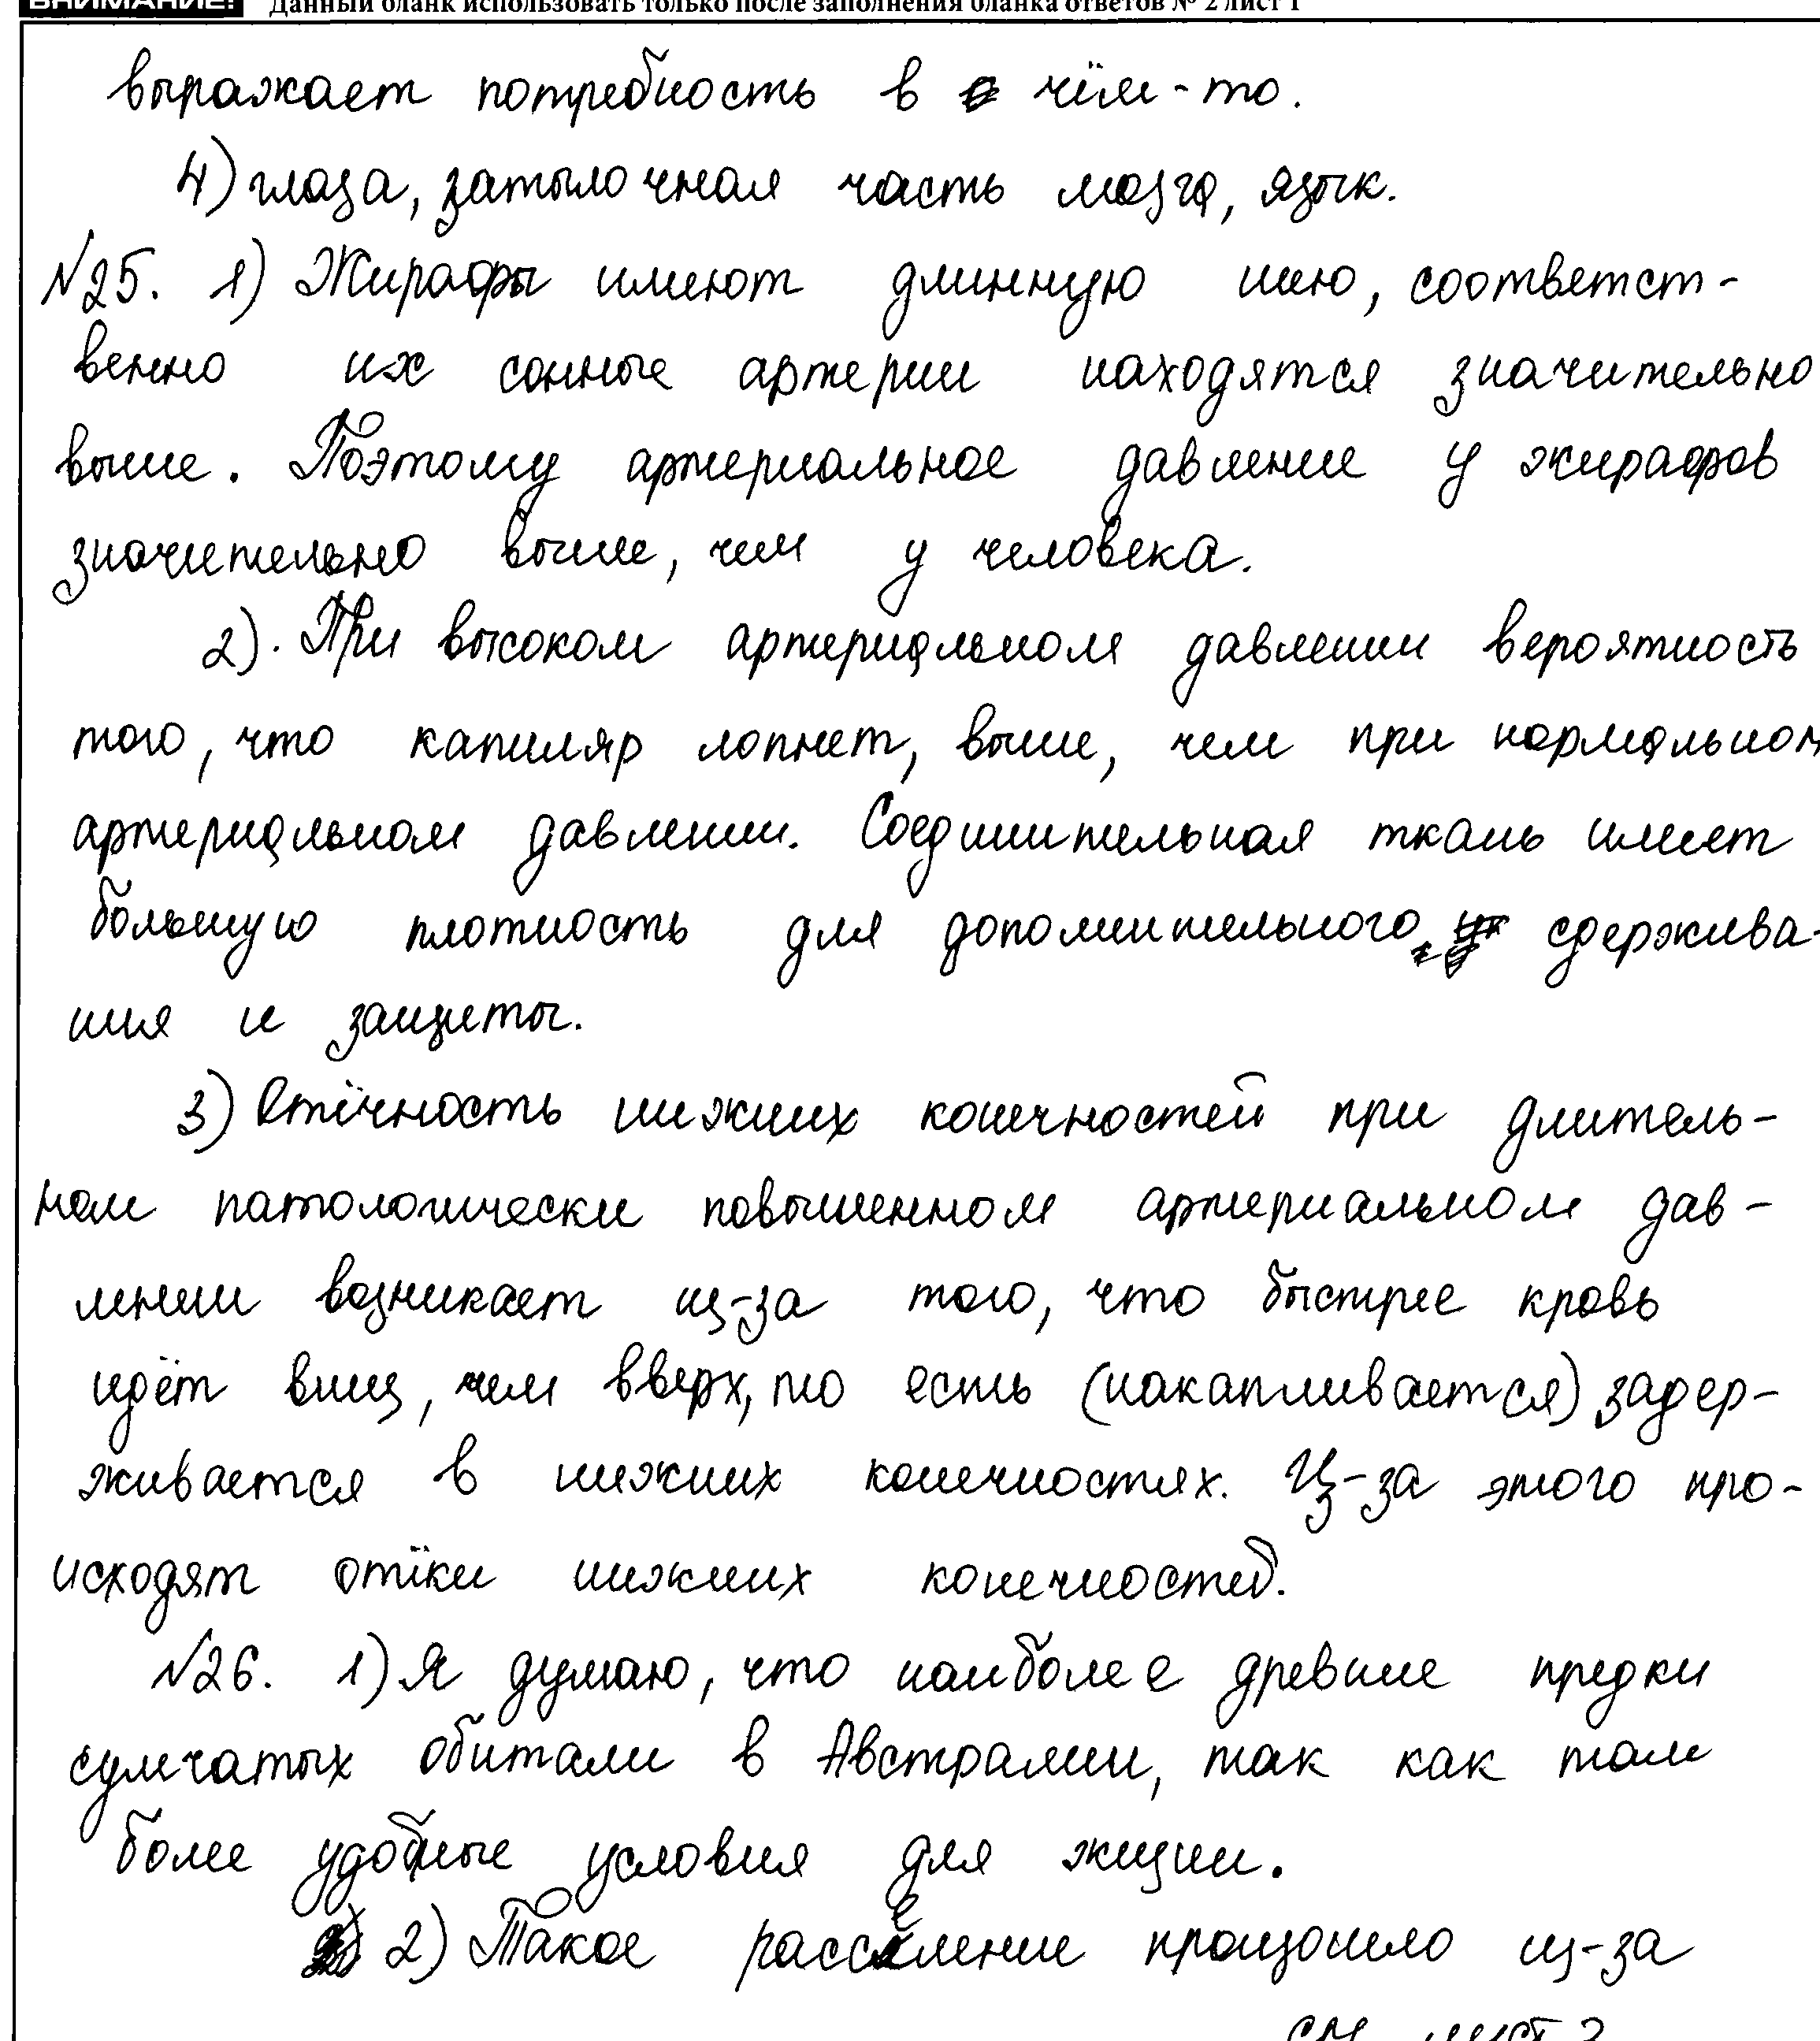 ВНИМАНИЕ! Данный бланк использовать только после заполнения бланка ответов № 2 лист 1
выражает потребность в чём-то.
4) глаза, затылочная часть мозга, язык.
№25. 1) Жирафы имеют длинную шею, соответст-
венно их сонные артерии находятся значительно
выше. Поэтому артериальное давление у жирафов
значительно выше, чем у человека.
2). При высоком артериальном давлении вероятность
того, что капиляр лопнет, выше, чем при нормальном
артериальном давлении. Соединительная ткань имеет
большую плотность для дополнительного сдержива-
ния и защиты.
3) Отёчность нижних конечностей при длитель-
ном патологически повышенном артериальном дав-
лении возникает из-за того, что быстрее кровь
идёт вниз, чем вверх, то есть (накапливается) задер-
живается в нижних конечностях. Из-за этого про-
исходят отёки нижних конечностей.
№26. 1) Я думаю, что наиболее древние предки
сумчатых обитали в Австралии, так как там
более удобные условия для жизни.
2) Такое расселение произошло из-за
см лист 2